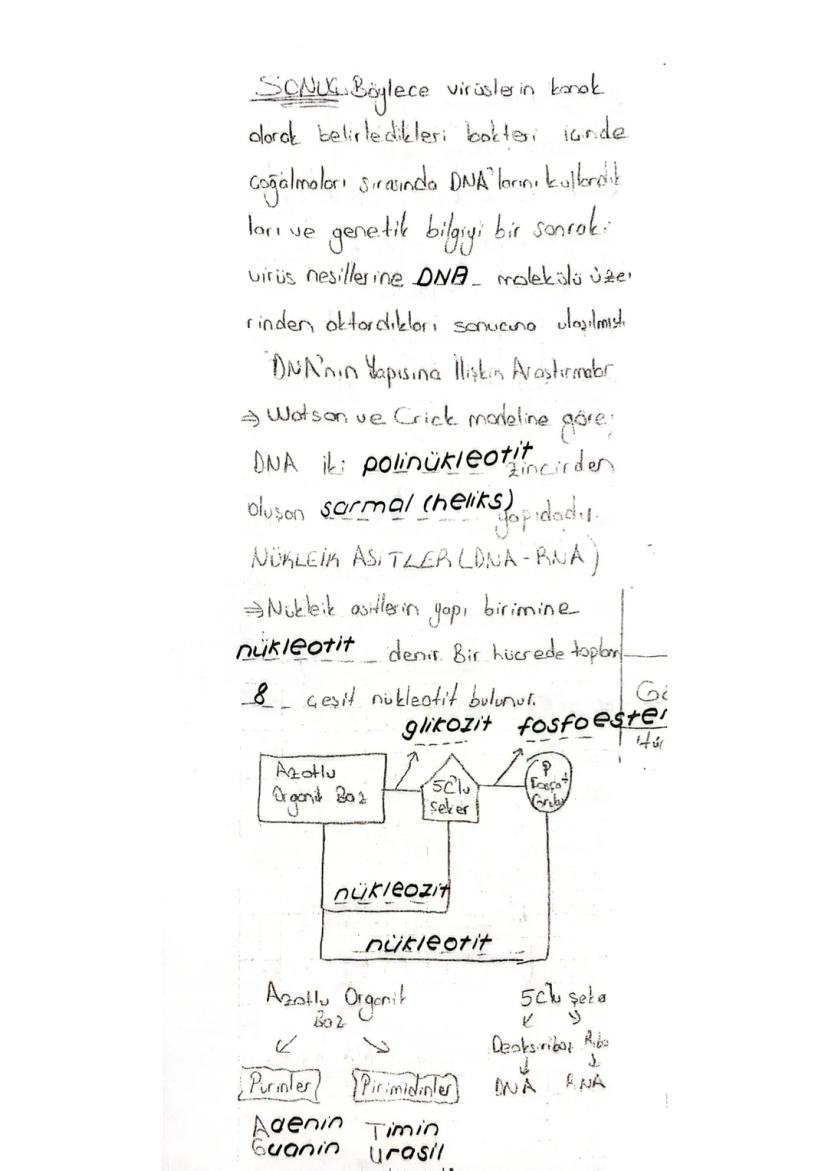 SONUÇ Böylece virüslerin konak
olarak belirledikleri bakteri içinde
çoğalmaları sırasında DNA'larını kullandık
ları ve genetik bilgiyi bir sonraki
virüs nesillerine DNA molekülü üze
rinden aktardıkları sonucuna ulaşılmıştı
DNA'nın Yapısına İlişkin Araştırmalar
⇒ Watson ve Crick modeline göre;
DNA iki polinükleotit zincirden
oluşan sarmal (heliks) yapıdadır.
NÜKLEİK ASİTLER (DNA-RNA)
⇒ Nükleik asitlerin yapı birimine
nükleotit denir. Bir hücrede toplam
8 çeşit nükleotit bulunur.
glikozit fosfoester
Azotlu
Organik Baz
5C'lu
şeker
P
Fosfat
Grubu
nükleozit
nükleotit
Azotlu Organik
Baz
5C'lu şeke
Deoksiriboz Ribo
DNA RNA
Pürinler Pirimidinler
Adenin Timin
Guanin Urasil